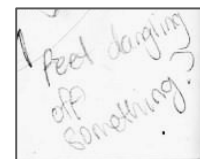 feet dangling
off
something?